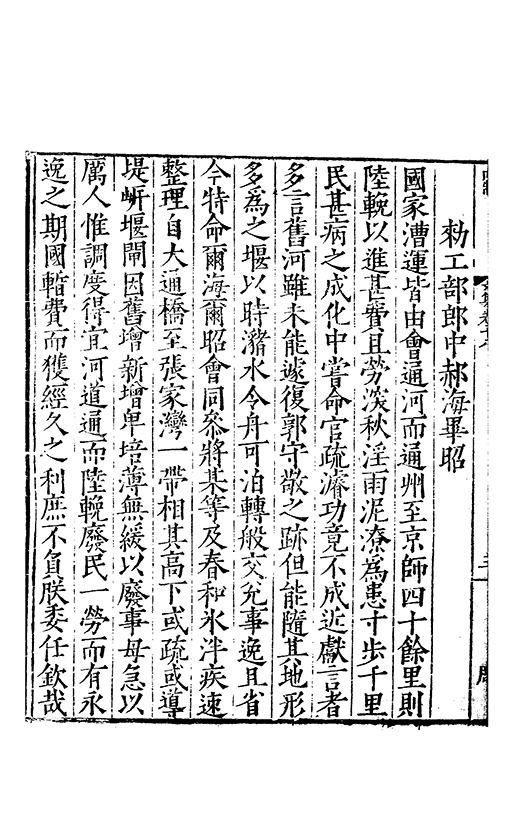 勑工部郎中郝海畢昭
國家漕運皆由會通河而通州至京師四十餘里則
陸輓以進甚費且勞淺秋淫雨泥潦爲患寸步千里
民甚病之成化中嘗命官疏濬功竟不成近獻言者
多言舊河雖未能遽復郭守敬之跡但能隨其地形
多爲之堰以時瀦水令舟可泊轉般交兊事逸且省
今特命爾海爾昭會同叅將某等及春和氷泮疾速
整理自大通橋至張家灣一帶相其高下或疏或導
堤㟁堰閘因舊增新增卑培薄無緩以廢事毋急以
厲人惟調度得宜河道通而陸輓廢民一勞而有永
逸之期國暫費而獲經久之利庶不負朕委任欽哉